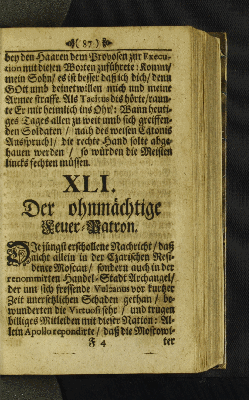 ( 87 )
bey den Haaren dem Provosen zur Execu-
tion mit diesen Worten zuführete: Komm/
mein Sohn/ es ist besser daß ich dich/ denn
GOtt umb deinet willen mich und meine
Armee straffe. Als Tacitus dis hörte/ raun-
te Er mir heimlich ins Ohr: Wann heuti-
ges Tages allen zu weit umb sich greiffen-
den Soldaten/ nach des weisen Catonis
Ausspruch/ die rechte Hand solte abge-
hauen werden/ so würden die Meisten
lincks fechten müssen.
XLI.
Der ohnmächtige
Feuer-Patron.
DIe jüngst erschollene Nachricht/ daß
nicht allein in der Czarischen Resi-
dentz Moscau/ sondern auch in der
renommirten Handel-Stadt Archangel/
der um sich fressende Vulcanus vor kurtzer
Zeit unersetzlichen Schaden gethan/ be-
wunderten die Virtuosi sehr/ und trugen
billiges Mitleiden mit dieser Nation: Al-
lein Apollo repondirte/ daß die Moscowi-
F 4 ter